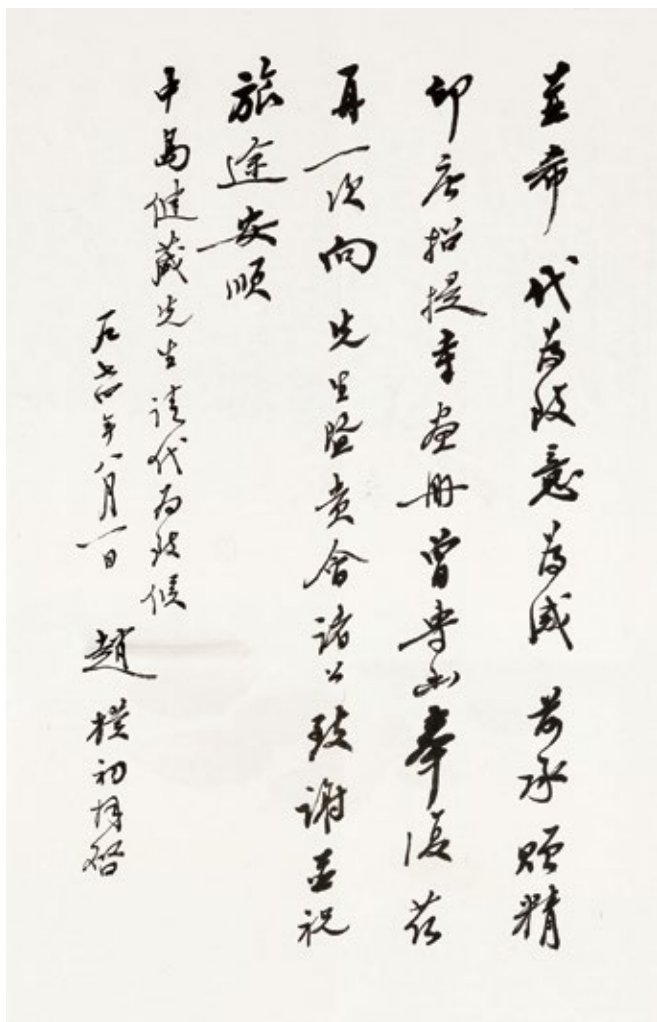 並希 代為致意為感 前承 贈精
印唐招提寺畫册曾專函奉復 茲
再一次向 先生暨貴會諸公致謝並祝
旅途安順
中島健蔵先生請代為致候
一九七四年八月一日 趙樸初拜啓